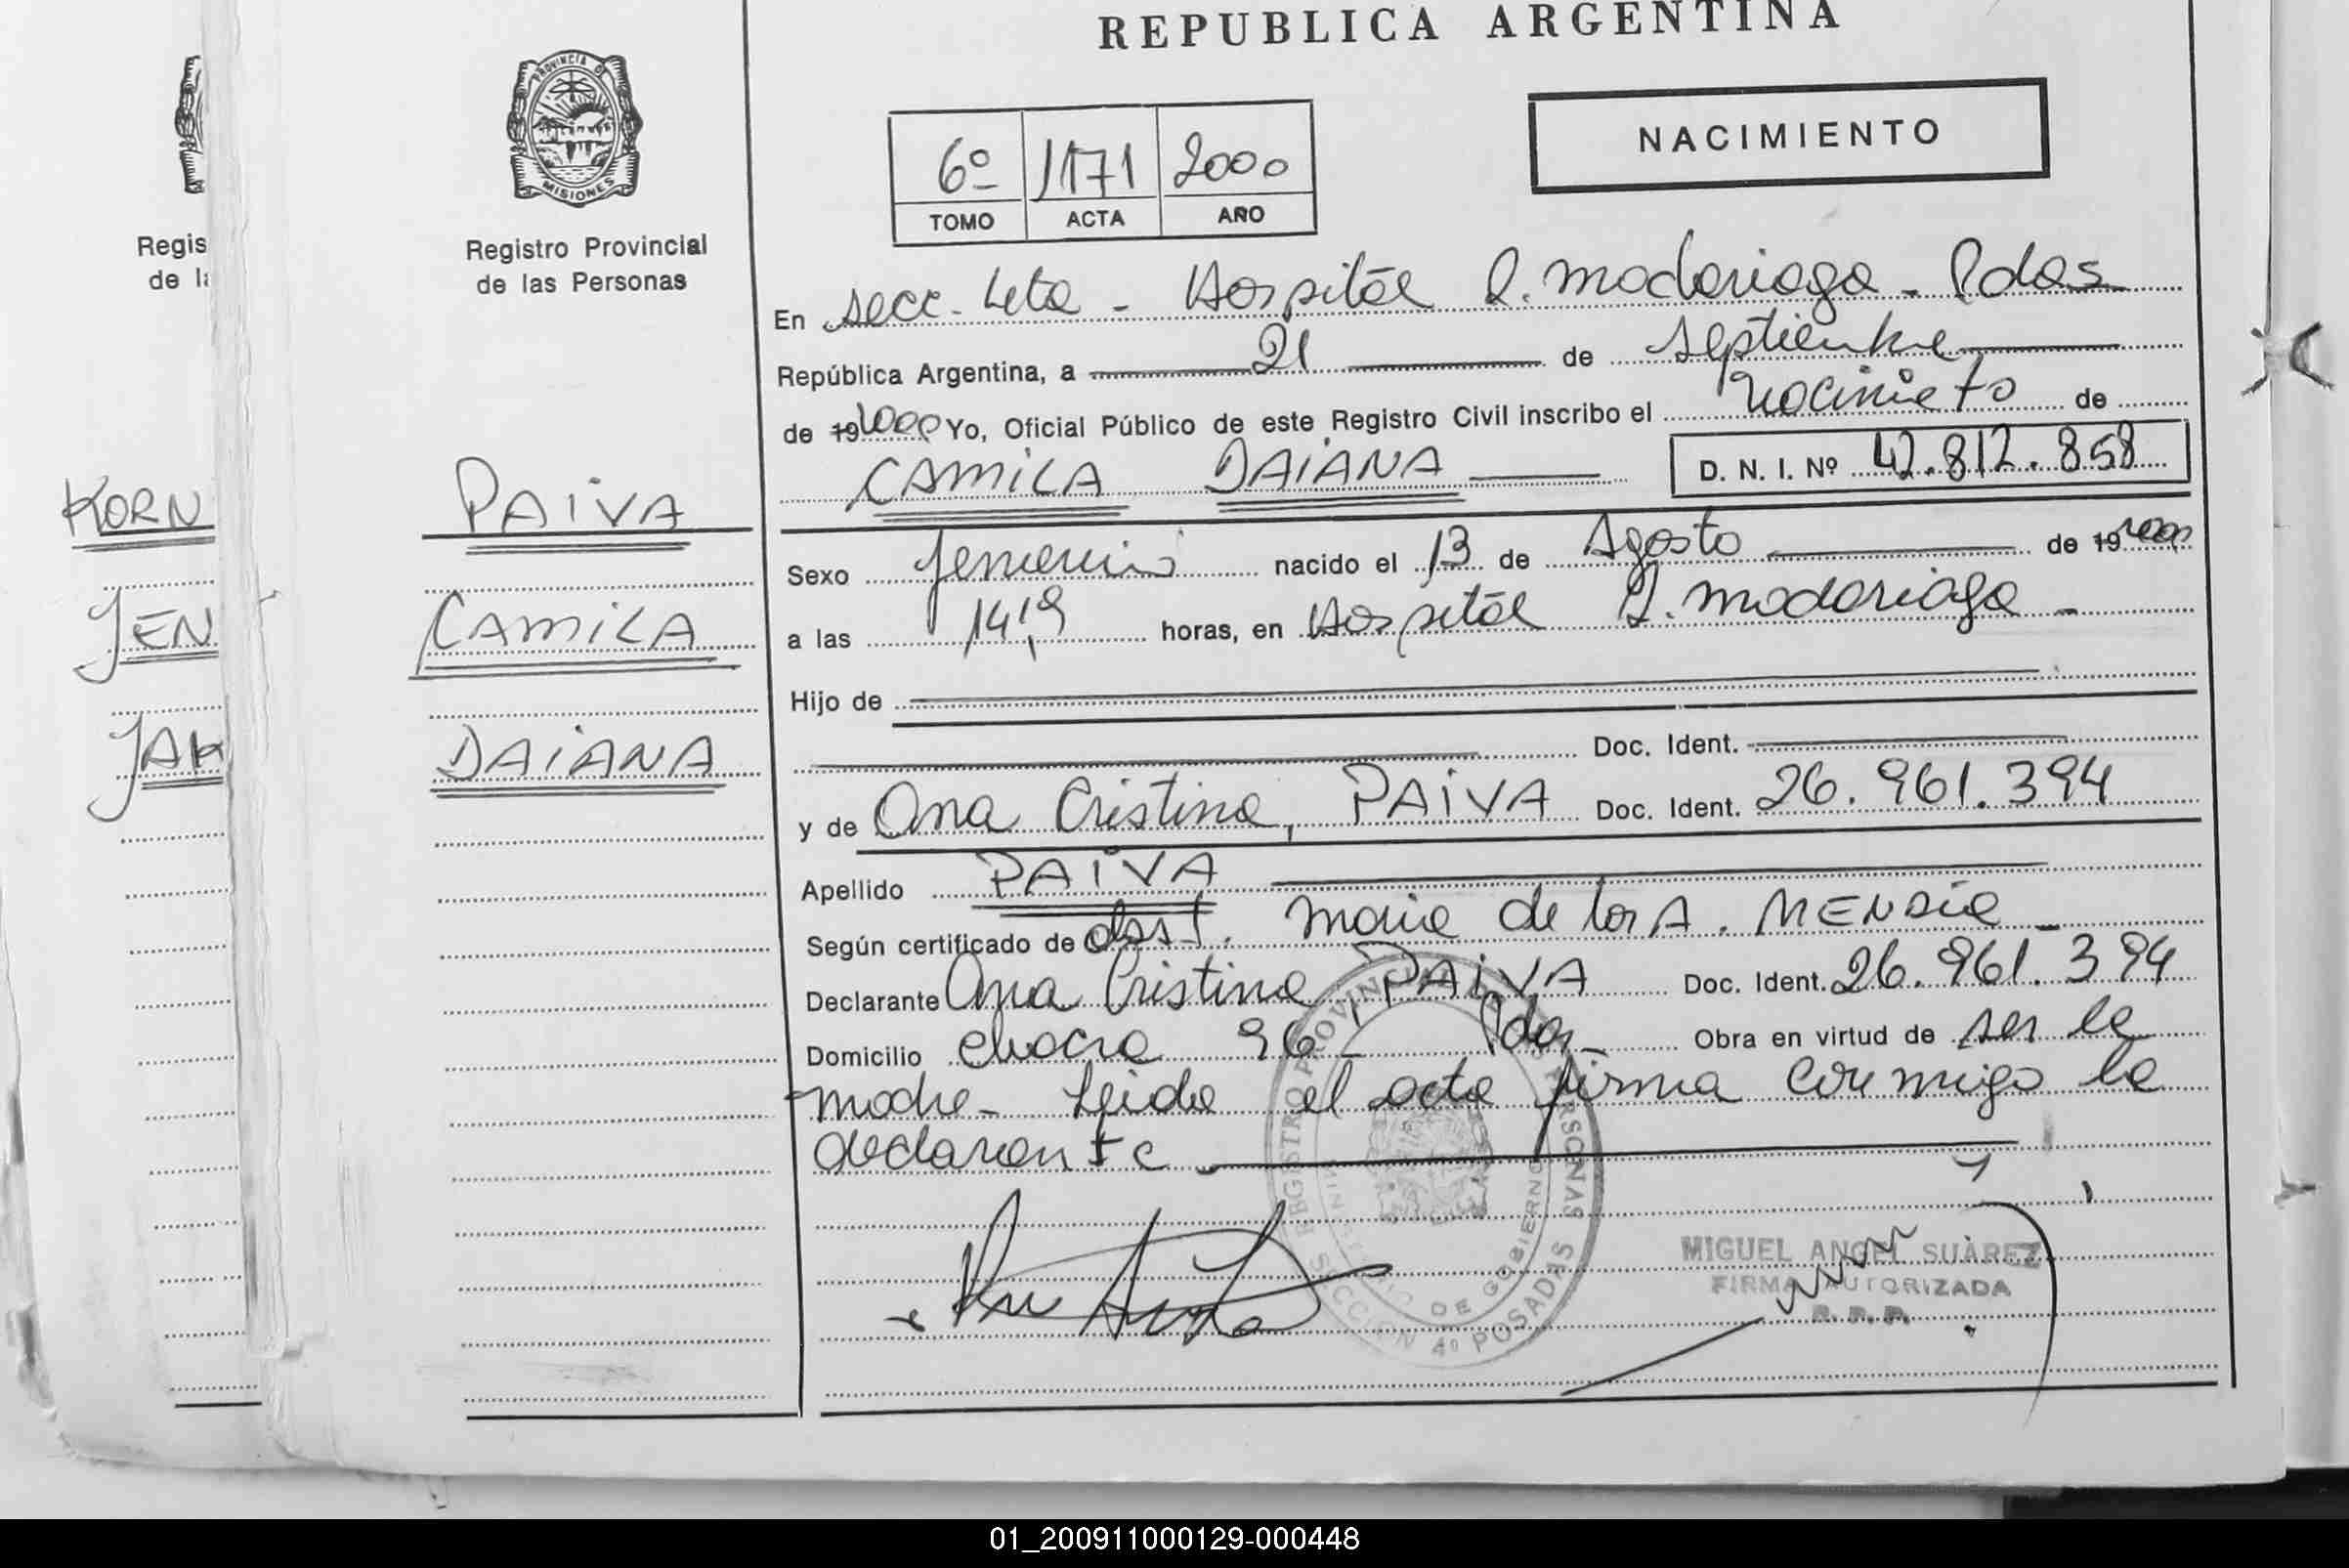 REPUBLICA ARGENTINA
PROVINCIA DE
MISIONES
Regis
de la
Registro Provincial
de las Personas
NACIMIENTO
6º 1171 2000
TOMO ACTA AÑO
En secc. 4ta - Hospital R. Madariaga - Pdas
República Argentina, a 21 de septiembre
de 19 2000 Yo, Oficial Público de este Registro Civil inscribo el nacimieto de
CAMILA DAIANA D. N. I. Nº 42.812.858
KORN
JEN
JAK
PAIVA
CAMILA
DAIANA
Sexo femenino nacido el 13 de Agosto de 19 2000
a las horas, en Hospital R. Madariaga -
Hijo de
Doc. Ident.
y de Ana Cristina, PAIVA Doc. Ident. 26.961.394
Apellido PAIVA
Según certificado de obst. Maria de los A.
Declarante Ana Cristina, PAIVA Doc. Ident. 26.961.394
Domicilio chacra 96 - Pdas - Obra en virtud de ser la
madre - Leida el acta firma conmigo la
declarante
REGISTRO PROVINCIAL DE LAS PERSONAS
DE GOBIERNO
SECCION 4º POSADAS
MIGUEL ANGEL SUAREZ
FIRMA AUTORIZADA
R. P. P.
01_200911000129-000448